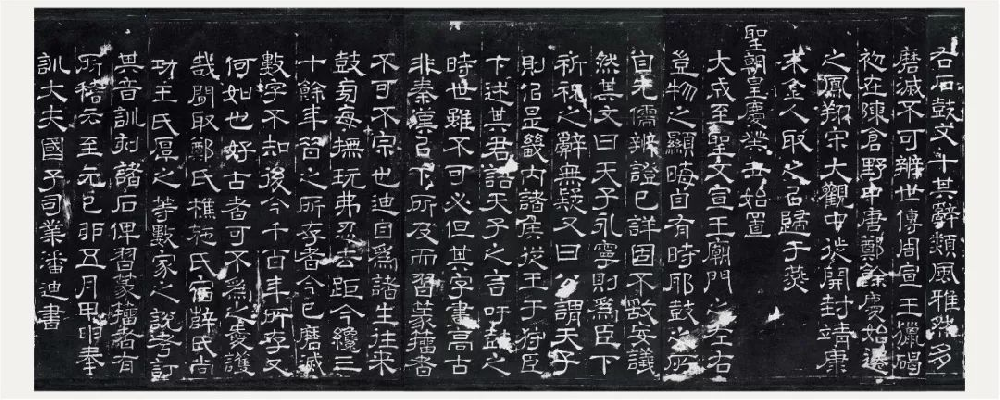 右石鼓文十其辭類風雅然多
磨滅不可辨世傳周宣王獵碣
初在陳倉野中唐鄭餘慶始遷
之鳳翔宋大觀中徙開封靖康
末金人取之㠯歸于燕
聖朝皇慶癸丑始置
大成至聖文宣王廟門之左右
豈物之顯晦自有時耶鼓之所
自先儒辨證已詳固不敢妄議
然其文曰天子永寧則為臣下
祈祝之辭無疑又曰公謂天子
則㠯是畿內諸侯從王于狩臣
下述其君語天子之言吁鼓之
時世雖不可必但其字畫高古
非秦漢㠯下所及而習篆籀者
不可不宗也迪自爲諸生往來
鼓旁每撫玩弗忍去距今纔三
十餘年昔之所存者今已磨滅
數字不知後今千百年所存又
何如也好古者可不爲之愛護
哉間取鄭氏樵施氏宿薛氏尚
功王氏厚之等數家之說考訂
其音訓刻諸石俾習篆籀者有
所稽云至元己卯五月甲申奉
訓大夫國子司業潘迪書